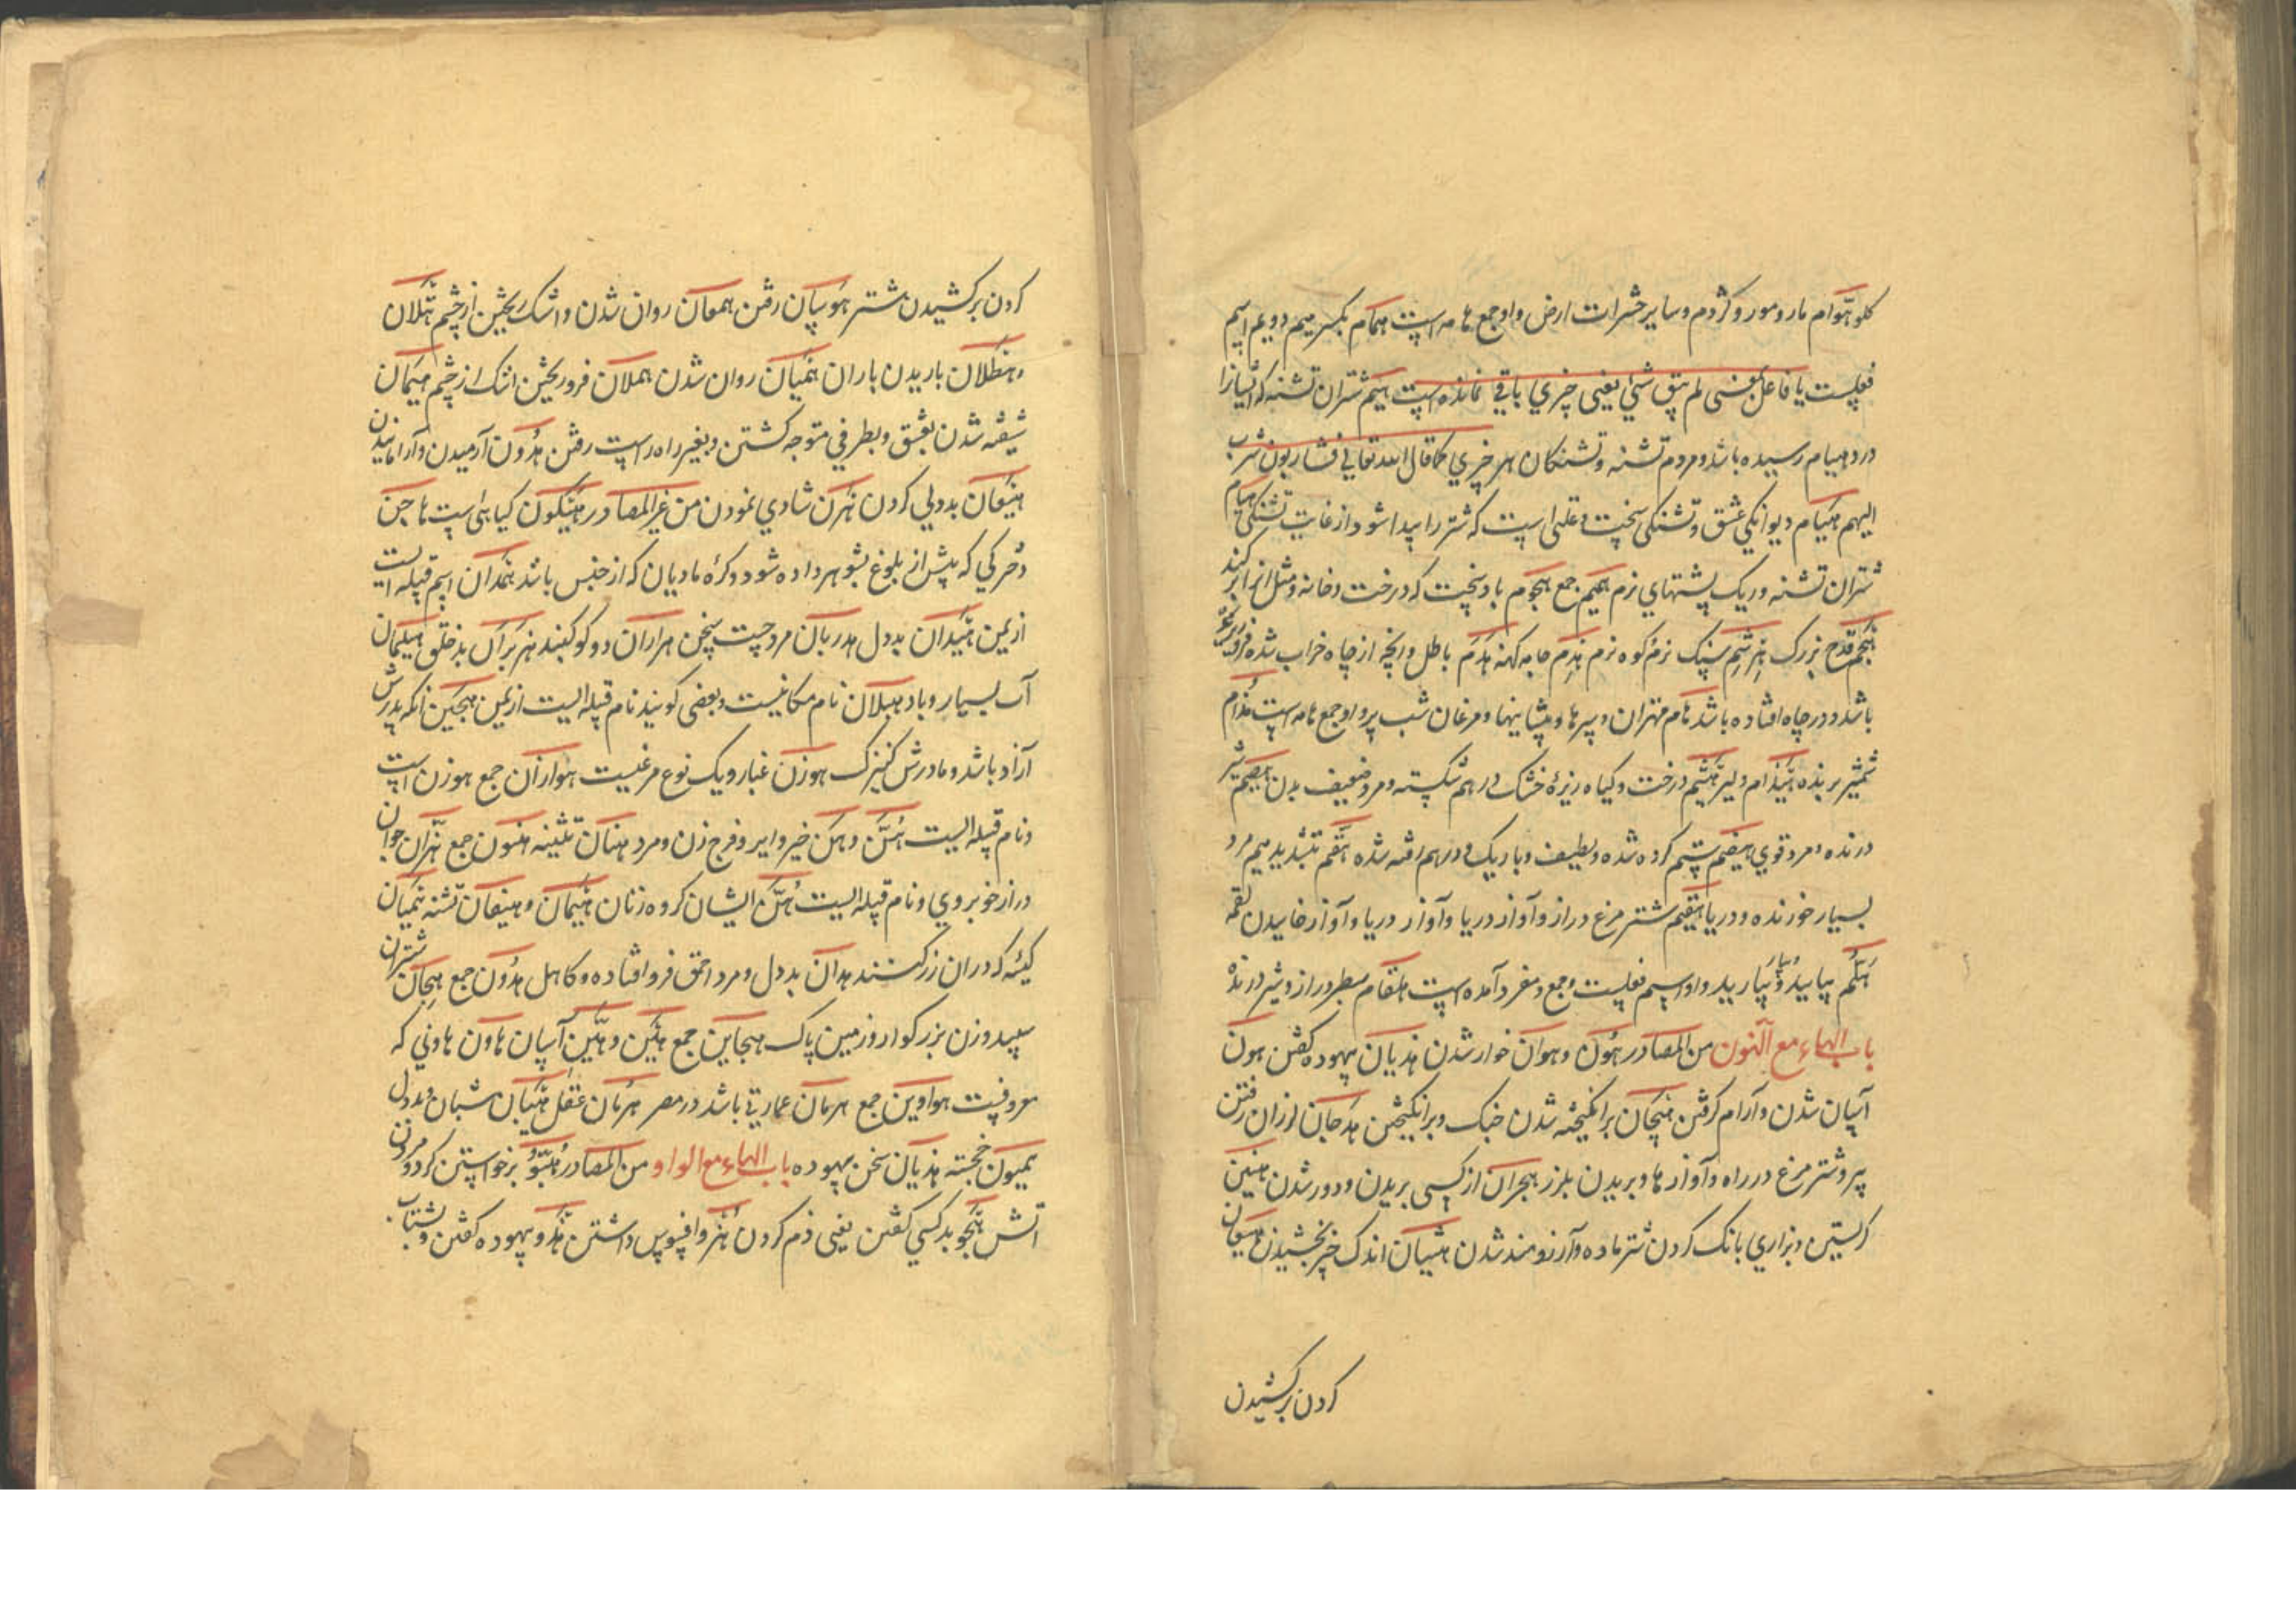 کلو هوّام مار و مور و کژدم و سایر حشرات ارض و او جمع هامه است همام بکسر میم دویم اسم
فعلست یا فاعل بمعنی لم یبق شئ یعنی چیزی باقی نمانده است هیم شتران تشنه که ایشانرا
درد هیام رسیده باشد و مردم تشنه و تشنکان هر چیزی کما قال الله تعالی فشاربون شرب
الهیم هیام دیوانکی عشق و تشنکی سخت و علتی است که شتر را پیدا شود از غایت تشنکی هیام
شتران تشنه و ریک پشتهای نرم هجیم جمع هجوم باد سخت که درخت و خانه و مثل انرا برکند
هجم قدح بزرک هرشم سنک نرم و کوه نرم هدم جامه کهنه هدم باطل و انچه از چاه خراب شده فرو ریخته
باشد و در چاه افتاده باشد هام مهتران و سرها و پیشانیها و مرغان شب پر و او جمع هامه است هذام
شمشیر برنده هیذام دلیر هشیم درخت و کیاه ریزهٔ خشک درهم شکسته و مرد ضعیف بدن هیصم شیر
درنده و مرد قوی هضیم ستم کرده شده و لطیف و باریک و درهم رفته شده هقم بتشدید میم مرد
بسیار خورنده و دریا هیقم شتر مرغ دراز و آواز دریا و آواز دریا و آواز خاییدن لقمه
هلم بیایید و بیارید و او اسم فعلست و جمع و مفرد آمده است هلقام سطبر دراز و شیر درنده
باب الهاء مع النون من المصادر هون و هوان خوار شدن هذیان بیهوده کفتن هون
آسان شدن و آرام کرفتن هیجان برانکیخته شدن جنک و برانکیختن هدجان لرزان رفتن
پیر و شتر مرغ در راه و آوازها و بریدن بلرز هجران از کسی بریدن و دور شدن هنین
کریستن و بزاری بانک کردن شتر ماده و آرزومند شدن هشیان اندک چیز بخشیدن هیعان
کردن برکشیدن
کردن برکشیدن شتر هوسان رفتن همعان روان شدن و اشک ریختن از چشم هتلان
و هطلان باریدن باران همیان روان شدن هملان فرو ریختن اشک از چشم هیمان
شیفته شدن بعشق و بطرفی متوجه کشتن و بغیر راه راست رفتن هدون آرمیدن و آرامانیدن
هیعان بددلی کردن هرن شادی نمودن من غیر المصادر هیکون کیاهی است هاجن
دخترکی که پیش از بلوغ بشوهر داده شود و کره مادیان که از جنس باشد همدان اسم قبیله ایست
از یمن هیدان بددل هدربان مرد چست سخن هراران دو کوکبند هنربران بدخلق هیلمان
آب بسیار و باد هبلان نام مکانیست و بعضی کویند نام قبیله ایست از یمن هجین انکه پدرش
آزاد باشد و مادرش کنیزک هوزن غبار و یک نوع مرغیست هوازن جمع هوزن است
و نام قبیله ایست هن و هن خیر و ایر و فرج زن و مرد هنان تثنیه هنون جمع هزان جوان
دراز خوبروی و نام قبیله ایست هن ایشان کروه زنان هیمان و هیفان تشنه همیان
کیسه که در ان زر کنند هدان بددل و مرد احمق فرو افتاده و کاهل هدون جمع هجان شتران
سپید و زن بزرکوار و زمین پاک هجاین جمع هین و هین آسان هاون هاونی که
معروفست هواوین جمع هرمان عمارتی باشد در مصر هرمان عقل هیبان شبان و بددل
میمون خجسته هذیان سخن بیهوده باب الهاء مع الواو من المصادر هبو برخواستن کرد و مردن
آتش هجو بد کسی کفتن یعنی ذم کردن هزو افسوس داشتن هذو بیهوده کفتن و شتاب